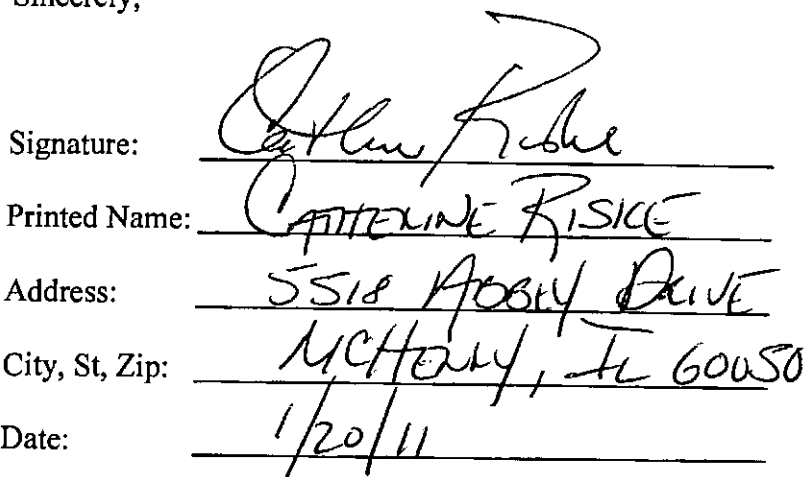 Sincerely,
Signature: Catherine Riske
Printed Name: CATHERINE RISKE
Address: 5518 ABBEY DRIVE
City, St, Zip: MCHENRY, IL 60050
Date: 1/20/11